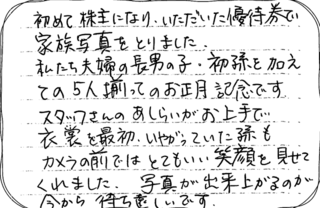 初めて株主になり、いただいた優待券で
家族写真をとりました。
私たち夫婦の長男の子・初孫を加え
ての5人揃ってのお正月記念です
スタッフさんのあしらいがお上手で
衣裳を最初、いやがっていた孫も
カメラの前ではとてもいい笑顔を見せて
くれました。写真が出来上がるのが
今から待ち遠しいです。